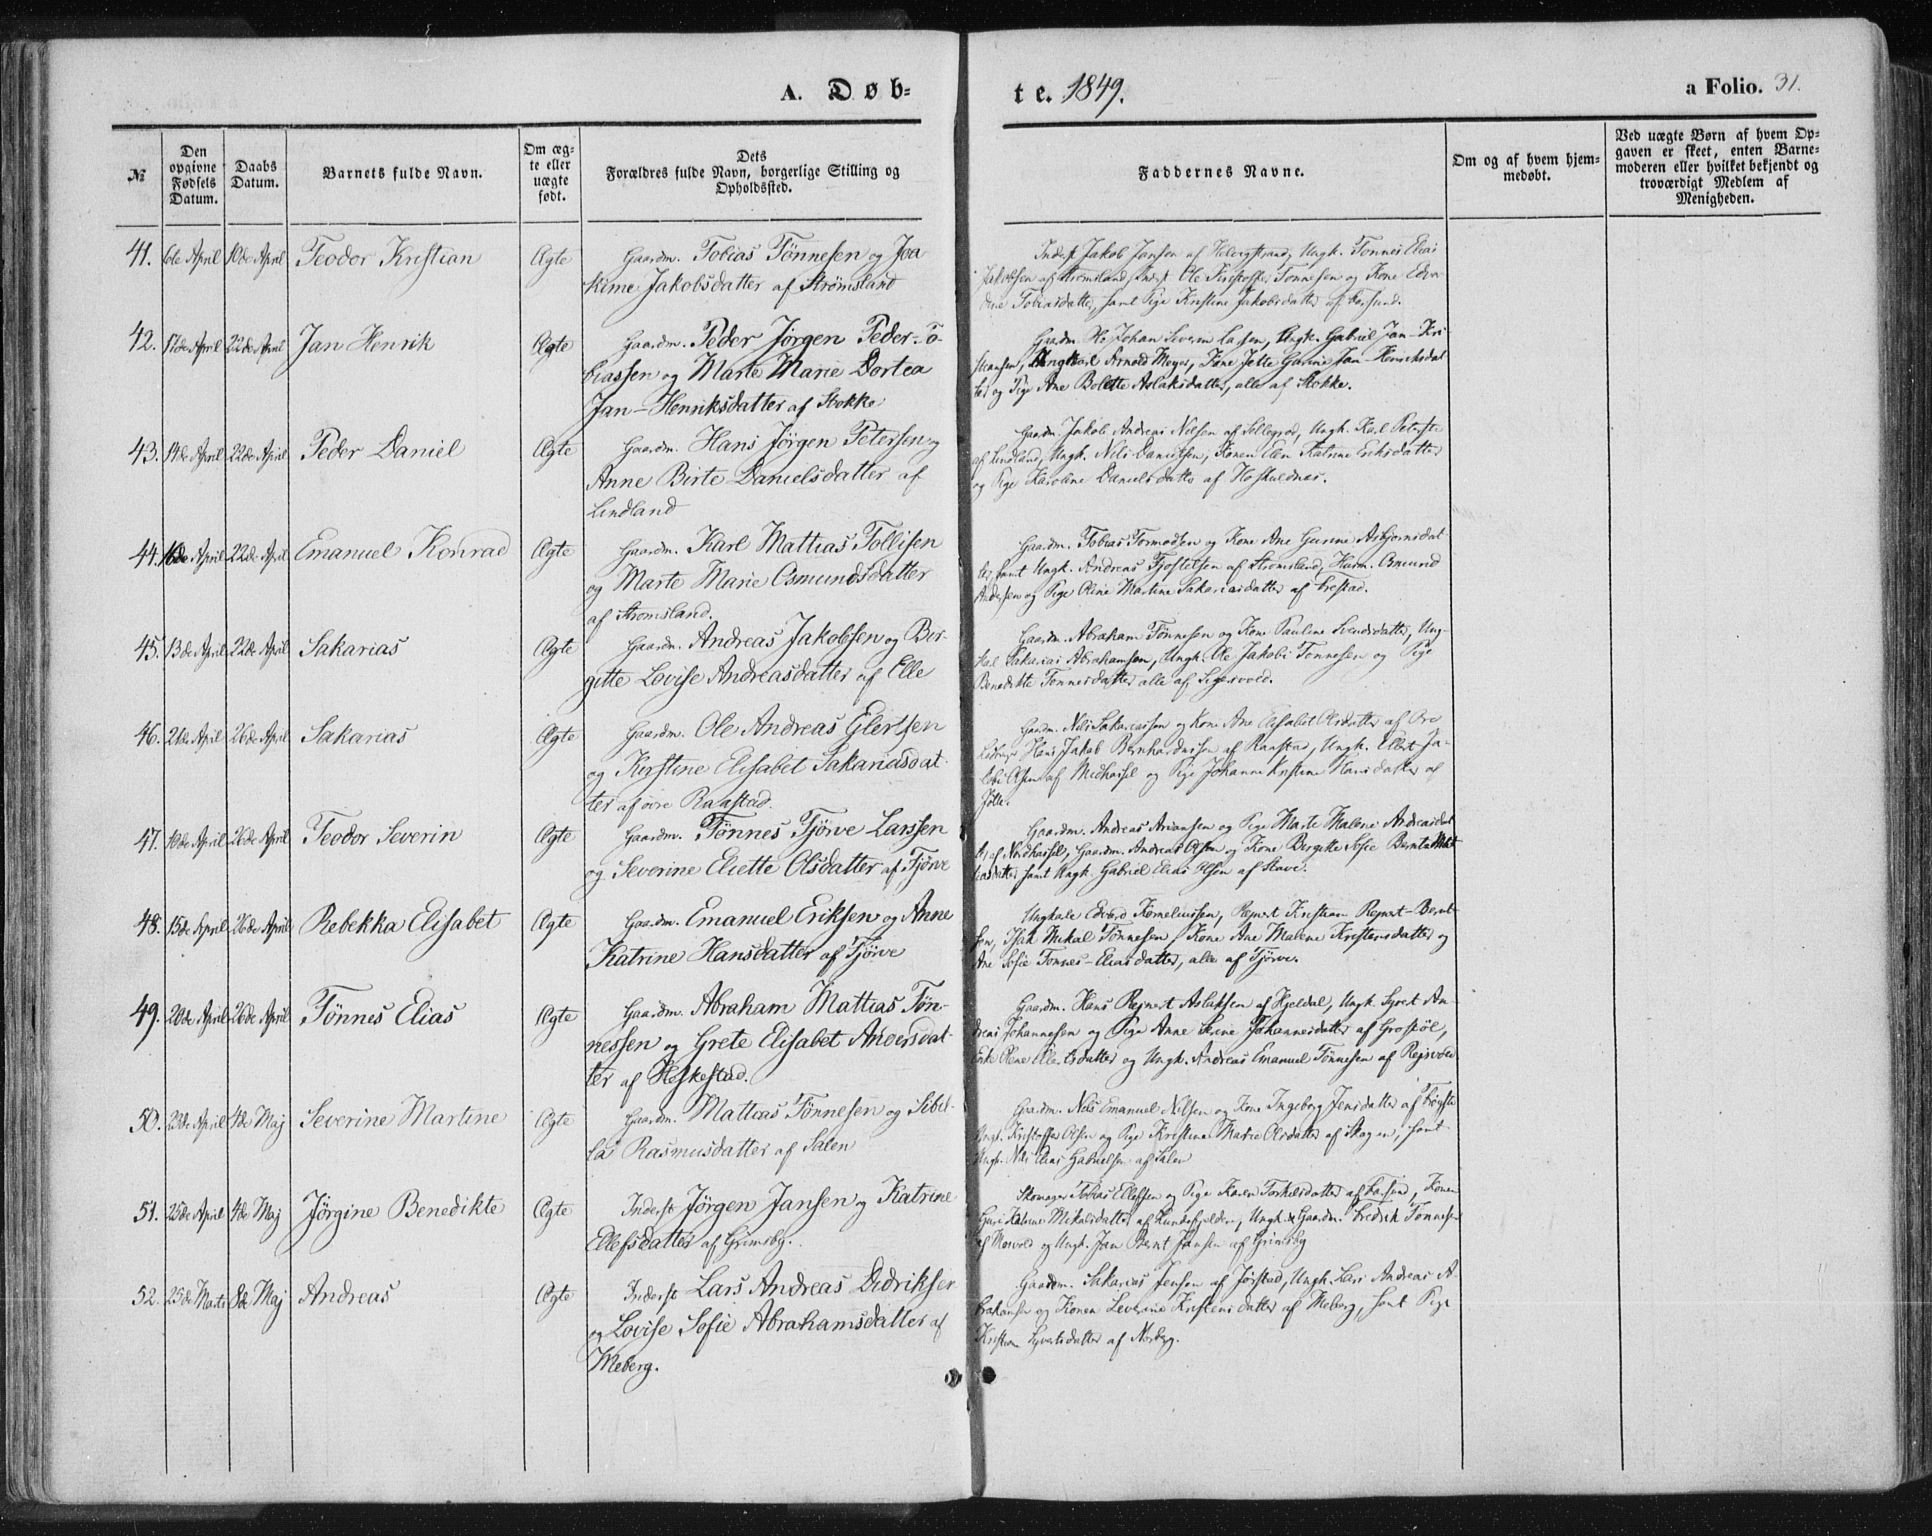 A. Døb-
te. 1849.
a Folio. 31.
№
Den opgivne Fødsels Datum.
Daabs Datum.
Barnets fulde Navn.
Om ægte eller uægte født.
Dets Forældres fulde Navn, borgerlige Stilling og Opholdsted.
Faddernes Navne.
Om og af hvem hjemmedøbt.
Ved uægte Børn af hvem Opgaven er skeet, enten Barnemoderen eller hvilket bekjendt og troværdigt Medlem af Menigheden.
41. 6te April 10de April Teodor Kristian Ægte Gaardm. Tobias Tönnesen og Joa
kime Jakobsdatter af Strømsland
Inderst Jakob Jansen af Ungk. Tönnes Elias
Jakobsen af Strømsland, Inderst Ole Kristoffer Tönnesen og Kone
Tobiasdatter, samt Pige Kristine Jakobsdatter af Farsund.
42. 17de April 22de April Jan Henrik Ægte Gaardm. Peder Jörgen Peder-To-
biassen og Marte Marie Dortea
Jan-Henriksdatter af Stokke
Gaardm. Johan Severin Ungk. Gabriel Jan-Kri
stiansen, Ungkarl Arnold Meyer, Kone Jette Gurine Jan-Henriksdat
ter og Pige Ane Bolette Aslaksdatter, alle af Stokke.
43. 14de April 22de April Peder Daniel Ægte Gaardm. Hans Jörgen Petersen og
Anne Birte Danielsdatter af
Lindland
Gaardm. Jakob Andreas Nilsen af Ungk. Karl
af Lindland, Ungk. Nils Danielsen, Konen Elen Katrine Eriksdatter
og Pige Karoline Danielsdatter af
44. 16de April 22de April Emanuel Konrad Ægte Gaardm. Karl Mattias Tollisen
og Marte Marie Osmundsdatter
af Strømsland.
Gaardm. Tobias Tormodsen og Kone Ane Gurine Asbjørnsdat
ter samt Ungk. Andreas af Strømsland, Osmund
Andersen og Pige Oline Martine Sakariasdatter af
45. 13de April 22de April Sakarias Ægte Gaardm. Andreas Jakobsen og Ber-
gitte Lovise Andreasdatter af Elle
Gaardm. Abraham Tönnesen og Kone Pauline Svendsdatter, Ung-
karl Sakarias Abrahamsen, Ungk. Ole Jakob Tönnesen og Pige
Benedikte Tönnesdatter alle af Sigersvold.
46. 21de April 26de April Sakarias Ægte Gaardm. Ole Andreas Elertsen
og Kirstine Elisabet Sakariasdat-
ter af øvre Raastad.
Gaardm. Nils Sakariassen og Kone Ane Elisabet Olsdatter af
Hans Jakob Bernhardussen af Raastad, Ungk. Ellert Ja-
kob Olsen af Midhassel og Pige Johanne Kristine Hansdatter af
Jölle.
47. 10de April 26de April Teodor Severin Ægte Gaardm. Tönnes Tjörve Larssen
og Severine Eliette Olsdatter af Tjörve
Gaardm. Andreas og Pige Marte Malene Andreasdat
ter af Nordhassel, Gaardm. Andreas Olsen og Kone Bergitte Sofie Bernt-Mat
tiasdatter samt Ungk. Gabriel Elias Olsen af Stave.
48. 15de April 26de April Rebekka Elisabet Ægte Gaardm. Emanuel Eriksen og Anne
Katrine Hansdatter af Tjörve
Ungkale Edvard Korneliussen, Reinert Kristian Reinert-Bernt-
sen, Isak Mikal Tönnesen, Kone Ane Malene Kristensdatter og
Ane Sofie Tönnes-Eliasdatter, alle af Tjörve.
49. 20de April 26de April Tönnes Elias Ægte Gaardm. Abraham Mattias Tön-
nessen og Grete Elisabet Andersdat-
ter af Høskestad.
Gaardm. Hans Rejnert Aslaksen af Hjeldal, Ungk. Syvert An-
dreas Johannesen og Pige Anne Serine Johannesdatter af
Enke Olene og Ungk. Andreas Emanuel Tönnesen af
50. 23de April 4de Maj Severine Martine Ægte Gaardm. Mattias Tönnesen og Sibil-
la Rasmusdatter af Salen
Gaardm. Nils Emanuel Nilsen og Kone Ingeborg Jensdatter af
Ungk. Kristoffer Olsen og Pige Kristine Marie Olsdatter af Skagen, samt
Ungk. Nils Elias Gabrielsen af Salen
51. 25de April 4de Maj Jørgine Benedikte Ægte Inderst Jörgen Jansen og Katrine
Ellefsdatter af Grimsby.
Skomager Tobias Ellefsen og Pige Karen Torkelsdatter af Farsund, Konen
Guri Katrine Mikalsdatter af Ungk. Gaardm. Fredrik Tönnesen
af og Ungk. Jan Bernt Jansen af Grimsby
52. 25de Marts 8de Maj Andreas Ægte Inderst Lars Andreas Didriksen
og Lovise Sofie Abrahamsdatter af
Meberg.
Gaardm. Sakarias Jensen af Jørstad, Ungk. Lars Andreas A-
brahamsen og Konen Severine Kristensdatter af Meberg, samt Pige
Kristiane Syvertsdatter af Norberg.